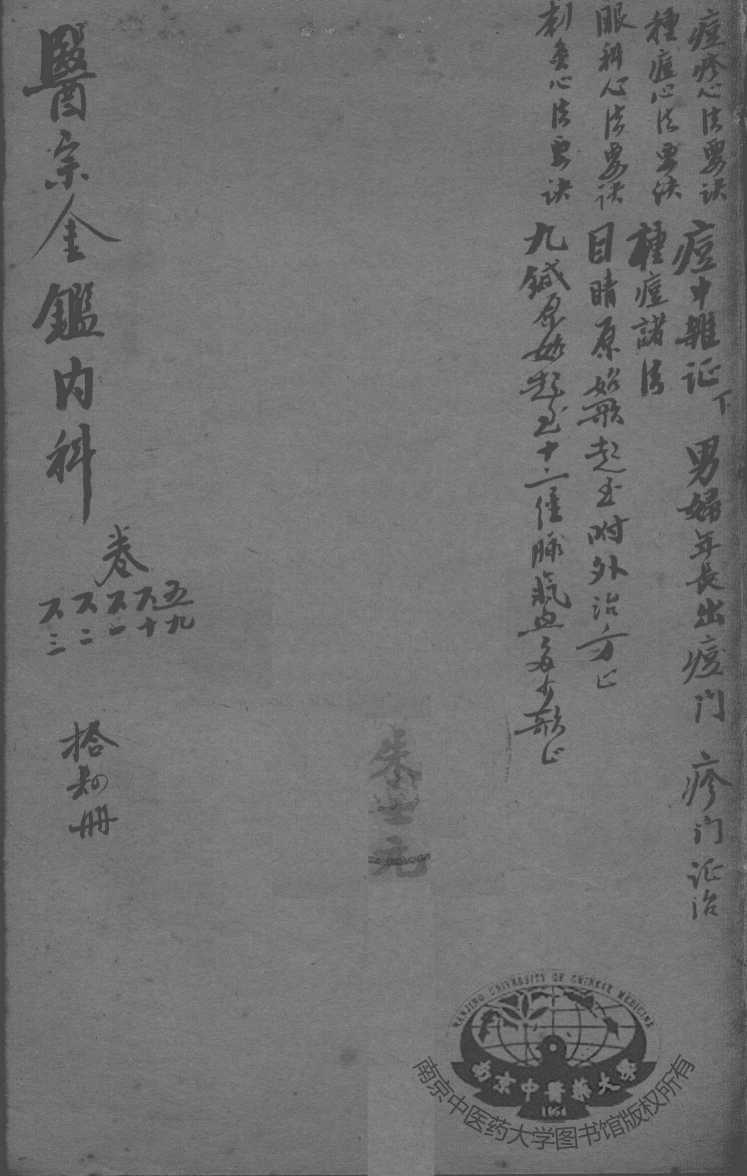 痘疹心法要诀 痘中雜证下 男婦年長出痘门 疹门证治
種痘心法要诀 種痘諸法
眼科心法要诀 目睛原始歌起至附外治方止
刺灸心法要诀 九鍼原始起至十二經脉氣血多少歌止
朱
元
醫宗金鑑内科
卷
五九
六十
六一
六二
六三
拾 册
NANJING UNIVERSITY OF CHINESE MEDICINE
南京中醫藥大學
1954
南京中医药大学图书馆版权所有